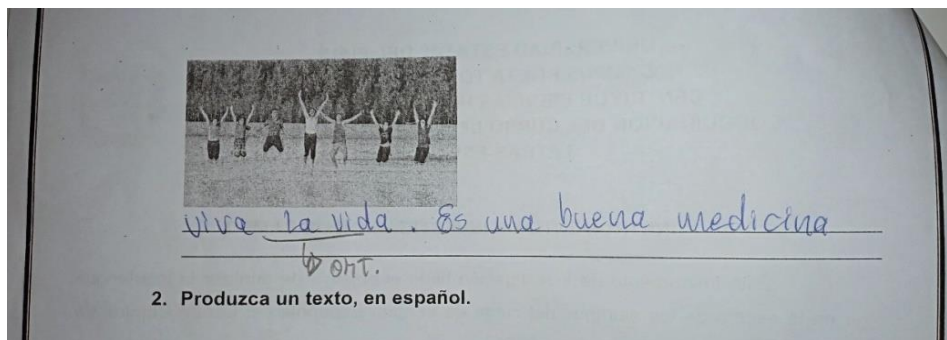 viva la vida. Es una buena medicina
ort.
2. Produzca un texto, en español.